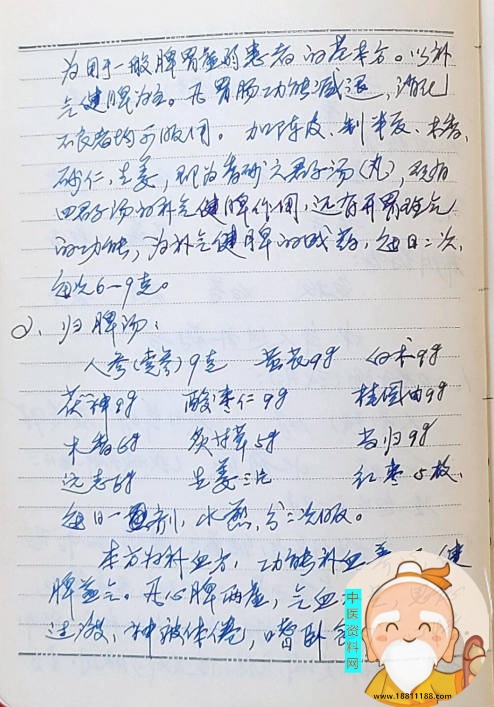 为用于一般脾胃虚弱患者的基本方。以补
气健脾为主。凡胃肠功能减退，消化
不良者均可服用。加陈皮、制半夏、木香、
砂仁、生姜，即为香砂六君子汤（丸），既有
四君子汤的补气健脾作用，还有开胃理气
的功能，为补气健脾的成药，每日二次，
每次6—9克。
2、归脾汤：
人参(党参)9克 黄芪9g 白术9g
茯神9g 酸枣仁9g 桂圆肉9g
木香6g 炙甘草5g 当归9g
远志6g 生姜三片 红枣5枚。
每日一剂，水煎，分二次服。
本方为补血方，功能补血养 健
脾益气。凡心脾两虚，气血
过度，神疲体倦，嗜卧
中医资料网
www.18811188.com